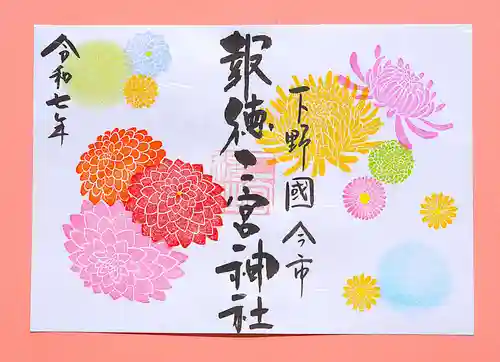 下野國今市
報徳二宮神社
令和七年